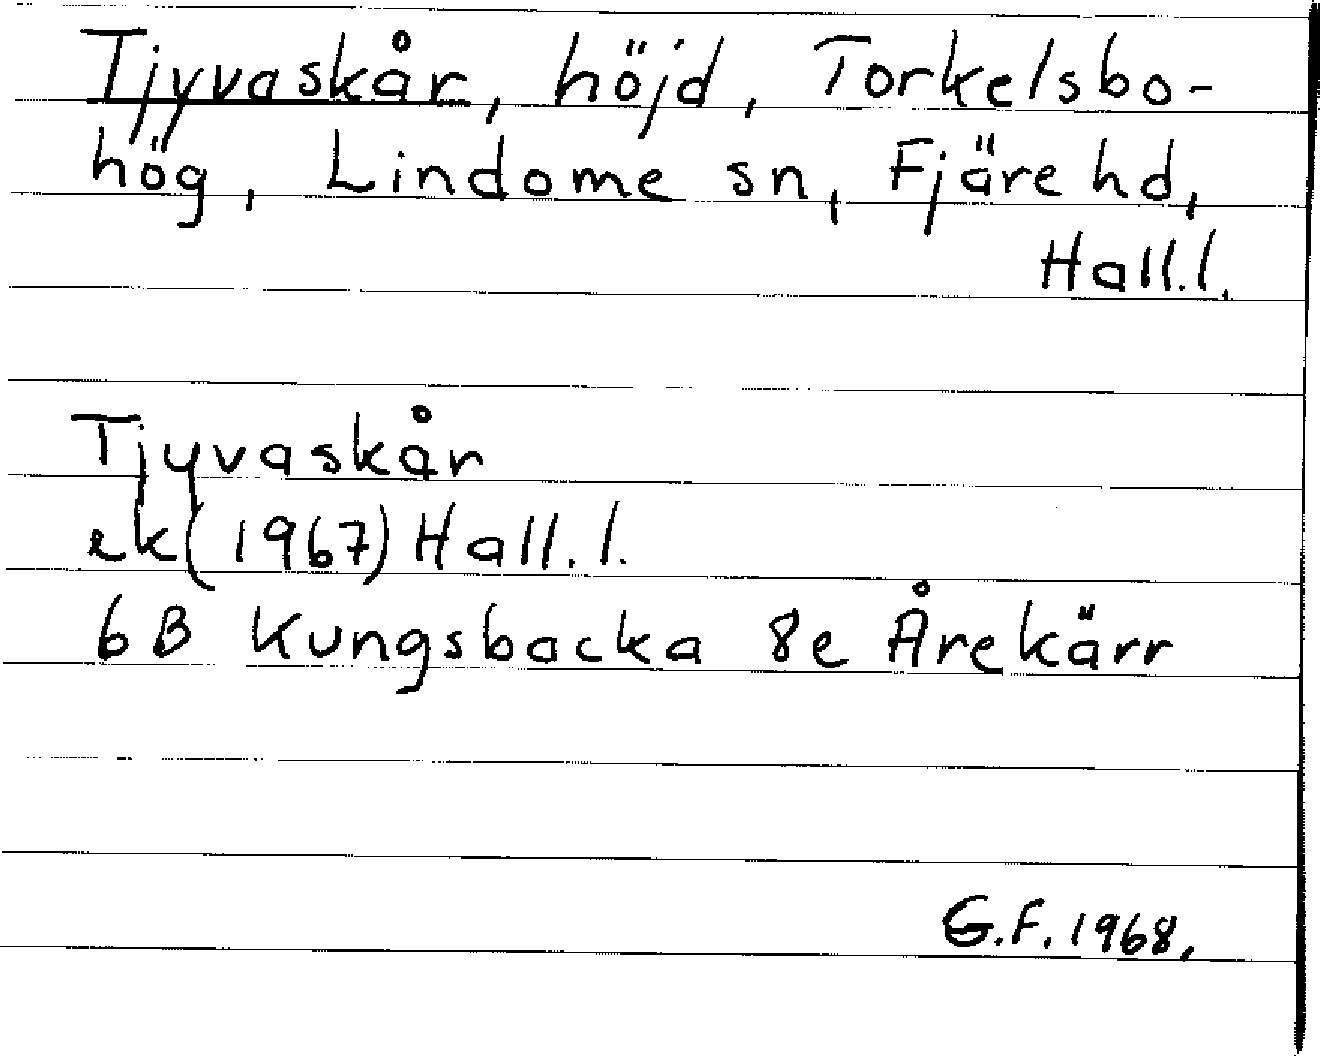 Tjyvaskår, höjd, Torkelsbo-
hög, Lindome sn, Fjäre hd,
Hall.l.
Tjyvaskår
ek(1967) Hall.l.
6B Kungsbacka 8e Årekärr
G.F. 1968.